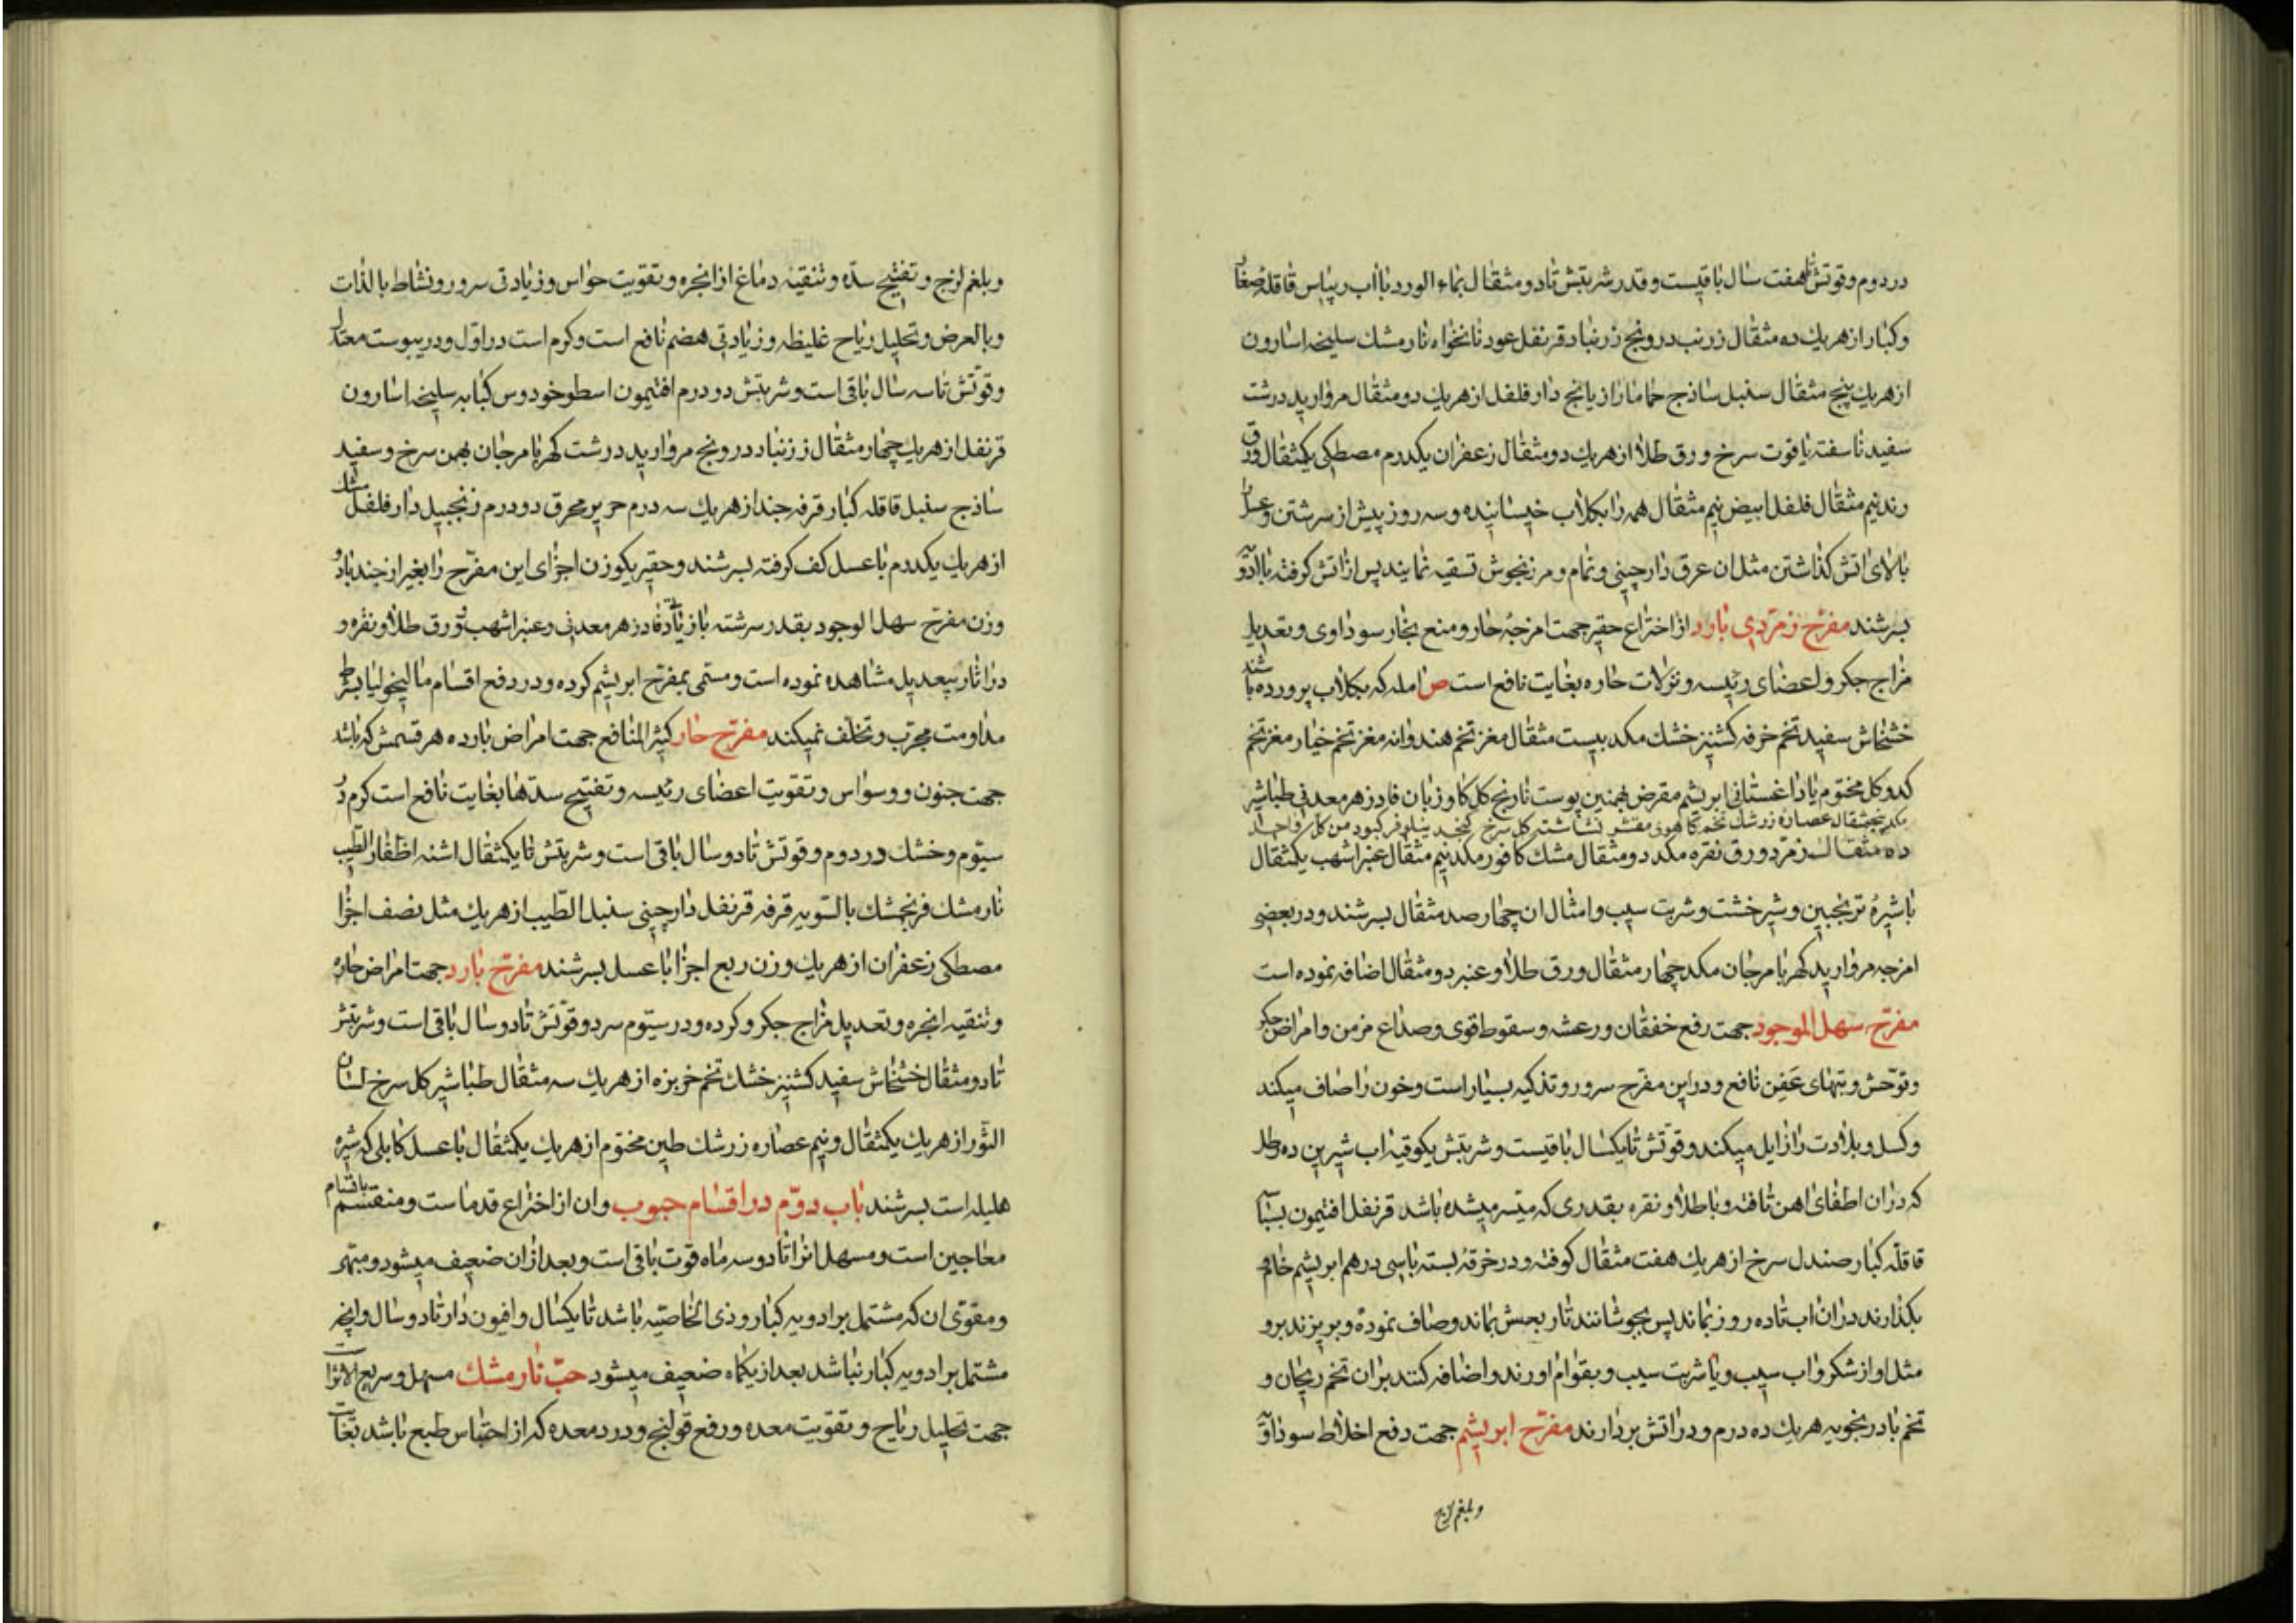 در دوم و قوتش تا هفت سال باقیست و قدر شربتش تا دو مثقال بماء الورد یا اب ریباس قاقله صغار
و کبار از هریك ده مثقال زرنب درونج زرنباد قرنفل عود نانخواه نارمشك سلیخه اسارون
از هریك پنج مثقال سنبل ساذج حماما رازیانج دار فلفل از هریك دو مثقال مروارید درشت
سفید ناسفته یاقوت سرخ ورق طلا از هریك دو مثقال زعفران یکدرم مصطکی یکمثقال
نیم مثقال فلفل ابیض نیم مثقال همه را بکلاب خیسانیده و سه روز پیش از سرشتن و عسل را
بالای اتش کذاشتن مثل ان عرق دارچینی و نمام و مرزنجوش تسقیه نمایند پس از اتش کرفته با ادویه
بسرشند مفرّح زمرّدی بارد از اختراع حقیر جهت امزجهٔ حار و منع بخار سوداوی و تعدیل
مزاج جکر و اعضای رئیسه و نزلات حاره بغایت نافع است ص امله که بکلاب پرورده باشند
خشخاش سفید تخم خرفه کشنیز خشك مکد بیست مثقال مغز تخم هندوانه مغز تخم خیار مغز تخم
کدو کل مختوم یا داغستانی ابریشم مقرض بهمنین پوست نارنج کل کاوزبان فادزهر معدنی طباشیر
مکد پنجمثقال عصاره زرشك تخم کاهوی مقشر نشاشته کل سرخ نیلوفر کبود من کل واحد
ده مثقال زمرّد ورق نقره مکد دو مثقال مشك کافور مکد نیم مثقال عنبر اشهب یکمثقال
با شیرهٔ ترنجبین و شیرخشت و شربت سیب و امثال ان چهار صد مثقال بسرشند و در بعضی
امزجه مروارید کهربا مرجان مکد چهار مثقال ورق طلا و عنبر دو مثقال اضافه نموده است
مفرّح سهل الموجود جهت رفع خفقان و رعشه و سقوط قوی و صداع مزمن و امراض جکر
و توحّش و تبهای عَفِن نافع و در این مفرّح سرور و تذکیه بسیار است و خون را صاف میکند
و کسل و بلادت را زایل میکند و قوّتش تا یکسال باقیست و شربتش یکوقیه اب شیرین ده رطل
که در ان اطفای اهن تافته و یا طلا و نقره بقدری که میّسر میشده باشد قرنفل افتیمون بسباسه
قاقلّه کبار صندل سرخ از هریك هفت مثقال کوفته و در خرقهٔ بسته با سی درهم ابریشم خام
بکذارند در ان اب تا ده روز بماند پس بجوشانند تا ربعش بماند و صاف نموده و بریزند برو
مثل او از شکر و اب سیب و یا شربت سیب و بقوام اورند و اضافه کنند بران تخم ریحان و
تخم بادرنجویه هریك ده درم و در اتش بردارند مفرّح ابریشم جهت دفع اخلاط سوداوّیه
و بلغم لزج
و بلغم لزج و تفتیح سدّه و تنقیه دماغ از ابخره و تقویت حواس و زیادتی سرور و نشاط بالذات
و بالعرض و تحلیل ریاح غلیظه و زیادتی هضم نافع است و کرم است در اوّل و در یبوست معتدل
و قوّتش تا سه سال باقی است و شربتش دو درم افتیمون اسطوخودوس کبابه سلیخه اسارون
قرنفل از هریك چهار مثقال زرنباد درونج مروارید درشت کهربا مرجان بهمن سرخ و سفید
ساذج سنبل قاقله کبار قرفه جند از هریك سه درم حریر محرق دو درم زنجبیل دار فلفل مشك
از هریك یکدرم با عسل کف کرفته بسرشند و حقیر یکوزن اجزای این مفرّح را بغیر از جند با دو
وزن مفرّح سهل الوجود بقدر سرشته با زیادتی فادزهر معدنی و عنبر اشهب و ورق طلا و نقره و
در اثار بیعدیل مشاهده نموده است و مسمّی بمفرّح ابریشم کرده و در دفع اقسام مالیخولیا بشرط
مداومت مجرّب و تخلّف نمیکند مفرّح حار کثیر المنافع جهت امراض بارده هر قسمش که باشد
جهت جنون و وسواس و تقویت اعضای رئیسه و تفتیح سدّها بغایت نافع است کرم در
سیّوم و خشك در دوم و قوتش تا دو سال باقی است و شربتش تا یکمثقال اشنه اظفار الطّیب
نارمشك فرنجمشك بالسّویه قرفه قرنفل دارچینی سنبل الطّیب از هریك مثل نصف اجزا
مصطکی زعفران از هریك وزن ربع اجزا با عسل بسرشند مفرّح بارد جهت امراض حاره
و تنقیه ابخره و تعدیل مزاج جکر و کرده و در سیّوم سرد و قوّتش تا دو سال باقی است و شربتش
تا دو مثقال خشخاش سفید کشنیز خشك تخم خربزه از هریك سه مثقال طباشیر کل سرخ لسان
الثّور از هریك یکمثقال و نیم عصاره زرشك طین مختوم از هریك یکمثقال با عسل کابلی که شیره
هلیله است بسرشند باب دوّم در اقسام حبوب و ان از اختراع قدماست و منقسم باقسام
معاجین است و مسهل انرا تا دو سه ماه قوت باقی است و بعد از ان ضعیف میشود و مبّهر
و مقوّی ان که مشتمل بر ادویه کبار و ذی الخاصیّه باشد تا یکسال و افیون دار تا دو سال و انچه
مشتمل بر ادویه کبار نباشد بعد از یکماه ضعیف میشود حبّ نارمشك مسهل و سریع الاثر است
جهت تحلیل ریاح و تقویت معده و رفع قولنج و درد معده که از احتباس طبع باشد بغایت